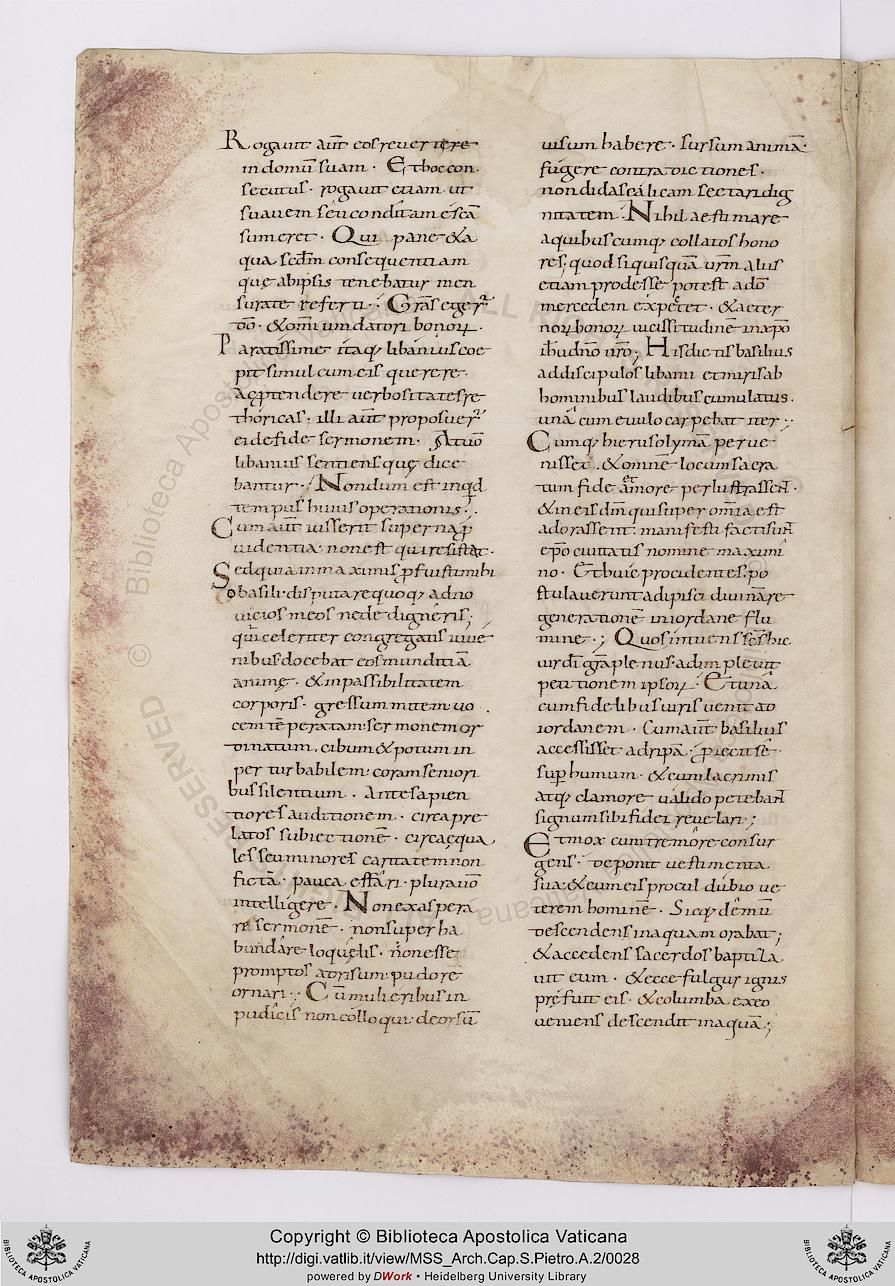 Rogauit aut̄ eos reuertere
in domū suam · Et hoc con
secutus · rogauit etiam ut
suauem seu conditam escā
sumeret · Qui pane & a
qua scdm̄ consequentiam
quę ab ipsis tenebatur men
surate referti · Gras̄ eger̄
dō · & omium datori bonoꝝ ·
Paratissime itaq; libanius coe
pit simul cum eis querere ·
Ac p̄tendere uerbositates re
thoricas · illi aut̄ proposuer̄
ei de fide sermonem · At uō
libanius sentiens quę dice
bantur · Nondum est inq̇d
tempus huius operationis ·
Cum aut̄ iusserit superna ꝓ
uidentia · non est qui resistat ·
Sed quia in maximis ꝓfuisti mihi
o basili · disputare quoq; ad no
uicios meos ne dedigneris ;
qui celeriter congregatis iuue
nibus docebat eos munditiā
animę · & inpassibilitatem
corporis · gressum mitem uo
cem tēperatam · sermonem or
dinatum · cibum & potum in
perturbabilem · coram seniori
bus silentium · Ante sapien
tiores auditionem · circa pre
latos subiectionē · circa ęqua
les seu minores caritatem non
fictā · pauca effari · plura uō
intelligere · Non exaspera
re sermonē · non super ha
bundare loquelis · non esse
promptos ad risum · pudore
ornari · Cū mulieribus in
pudicis non colloqui deorsū
uisum habere · sursum animā ·
fugere contradictiones ·
non didascalicam sectari dig
nitatem · Nihil aestimare
a quibuscumq; collatos hono
res ; quod si quisquā urm̄ aliis
etiam prodesse potest · a dō
mercedem expetet · & aeter
noꝝ bonoꝝ uicissitudinē in xp̄o
ih̄u dn̄o nr̄o ; His dictis basilius
ad discipulos libanii et miris ab
hominibus laudibus cumulatus ·
una cum euulo carpebat iter ;
Cumq; hierusolymā perue
nisset · & omnē locum sacra
tum fide et amore perlustrassent ·
& in eis dm̄ qui super om̄ia est
adorassent · manifesti facti sunt
ep̄o ciuitatis nomine maximi
no · Et huic procidentes · po
stulauerunt adipisci diuinare
generationē in iordane flu
mine · ; Quos intuens ses hic
uir dī gr̄a plenus · adimpleuit
petitionem ipsoꝝ · Et unā
cum fidelibus uiris uenit ad
iordanem · Cum aut̄ basilius
accessisset ad ripā · ꝓiecit se
suꝑ humum · & cum lacrimis
atq; clamore ualido petebat
signum sibi fidei reuelari ;
Et mox cum tremore consur
gens · deponit uestimenta
sua · & cum eis procul dubio ue
terem hominē · Sicq; demū
descendens in aquam orabat ;
& accedens sacerdos baptiza
uit eum · & ecce fulgur ignis
prefuit eis · & columba ex eo
ueniens descendit in aquā ;
Copyright © Biblioteca Apostolica Vaticana
http://digi.vatlib.it/view/MSS_Arch.Cap.S.Pietro.A.2/0028
powered by DWork • Heidelberg University Library